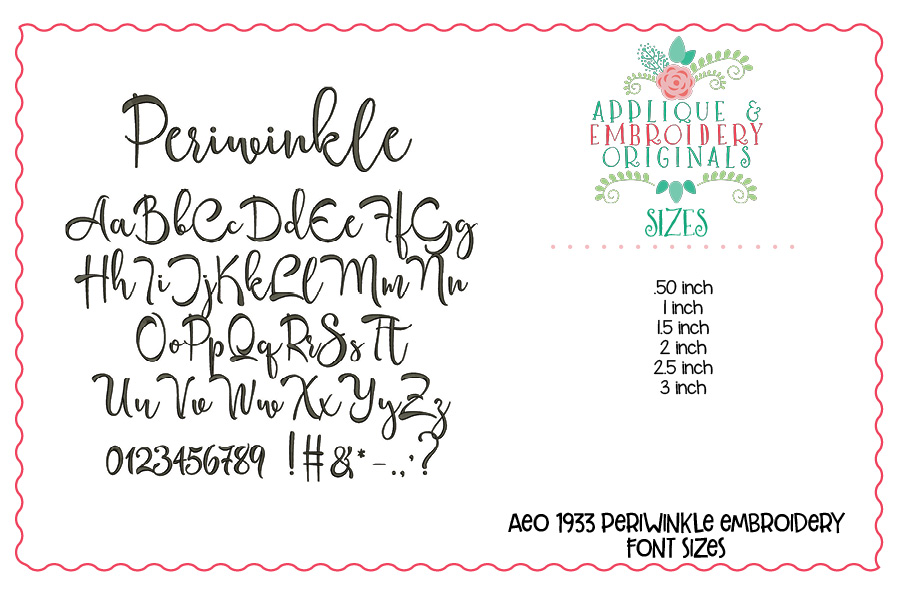 Periwinkle
AaBbCcDdEeFfGg
HhIiJjKkLlMmNn
OoPpQqRrSsTt
UuVvWwXxYyZz
0123456789 !#&*-.,;?
APPLIQUE &
EMBROIDERY
ORIGINALS
SIZES
.50 inch
1 inch
1.5 inch
2 inch
2.5 inch
3 inch
AEO 1933 PERIWINKLE EMBROIDERY
FONT SIZES